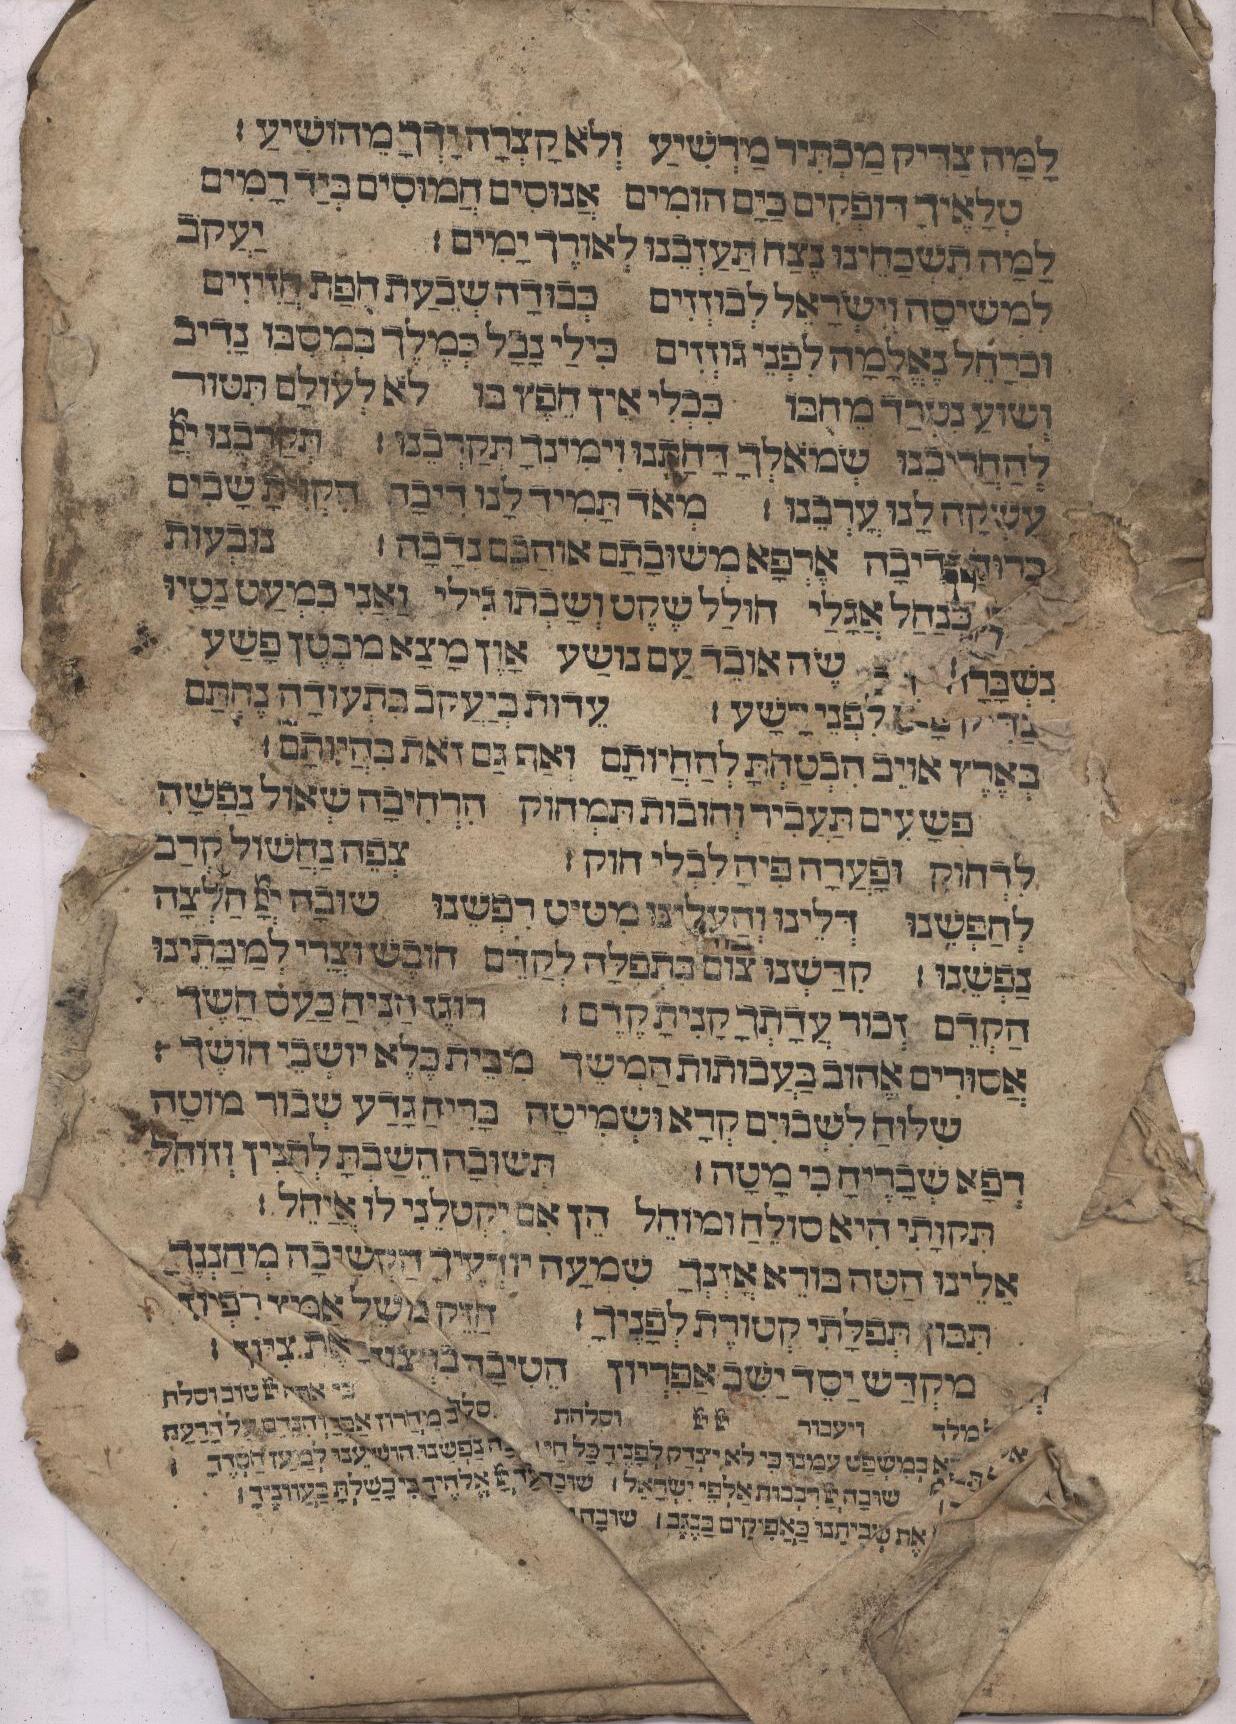 לָמָּה צַדִּיק מַכְתִּיר מַרְשִׁיעַ וְלֹא קָצְרָה יָדְךָ מֵהוֹשִׁיעַ :
טְלָאֶיךָ דוֹפְקִים כַּיָּם הוֹמִים אֲנוּסִים חֲמוּסִים בְּיַד רָמִים
לָמָּה תִשְׁכָּחֵינוּ נֶצַח תַּעַזְבֵנוּ לְאוֹרֶךְ יָמִים : יַעֲקֹב
לִמְשִׁיסָה וְיִשְׂרָאֵל לְבוֹזְזִים כְּבוּדָה שִׁבְעַת חֻפַּת חֲזִיזִים
וּכְרָחֵל נֶאֱלָמָה לִפְנֵי גוֹזְזִים כִּילַי נָבָל כְּמֶלֶךְ בִּמְסִבּוֹ נָדִיב
וְשׁוֹעַ נִטְרַד מֵחֻבּוֹ כִּכְלִי אֵין חֵפֶץ בּוֹ לֹא לְעוֹלָם תִּטּוֹר
לְהַחֲרִיבֵנוּ שְׂמֹאלְךָ דָּחָתָנוּ וִימִינְךָ תְּקָרְבֵנוּ : תְּקָרְבֵנוּ יְיָ
עָשְׁקָה לָנוּ עָרְבֵנוּ : מְאֹד תָּמִיד לָנוּ דִיבָּה שָׁבִים
בְּרוּחַ נְדִיבָה אֶרְפָּא מְשׁוּבָתָם אוֹהֲבֵם נְדָבָה : נוֹבְעוֹת
כְּנַחַל אֶגְלַי חוֹלַל שֶׁקֶט וְשָׁבְתוּ גִילַי וַאֲנִי כִּמְעַט נָטָיוּ
נִשְׁבָּרָה שֶׂה אוֹבֵד עַם נוֹשַׁע אָוֶן מָצָא מִבֶּטֶן פָּשַׁע
לִפְנֵי יָשַׁע : עֵדוּת בְּיַעֲקֹב בִּתְעוּדָה נֶחְתַּם
בְּאֶרֶץ אוֹיֵב הִבְטַחְתָּ לְהַחֲיוֹתָם וְאַף גַּם זֹאת בִּהְיוֹתָם :
פְּשָׁעִים תַּעֲבִיר וְחוֹבוֹת תִּמְחוֹק הִרְחִיבָה שְׁאוֹל נַפְשָׁהּ
לִדְחוֹק וּפָעֲרָה פִיהָ לִבְלִי חוֹק : צְפֵה נַחְשׁוֹל קְרַב
לְחַפְּשֵׂנוּ דְּלֵינוּ וְהַעֲלֵינוּ מִטִּיט רִפְשֵׁנוּ שׁוּבָה יְיָ חַלְּצָה
נַפְשֵׁנוּ : קִדַּשְׁנוּ צוֹם בִּתְפִלָּה לְקַדֵּם חוֹבֵשׁ וְצֳרִי לְמַכָּתֵינוּ
הַקְדֵּם זְכוֹר עֲדָתְךָ קָנִיתָ קֶדֶם : רוֹגֶז הַנִּיחַ כַּעַס חָשֵׂךְ
אֲסוּרִים אֱהוֹב בַּעֲבוֹתוֹת הַמְשֵׁךְ מִבֵּית כֶּלֶא יוֹשְׁבֵי חוֹשֶׁךְ :
שִׁלּוּחַ לִשְׁבוּיִם קְרָא וּשְׁמִיטָה בָּרִיחַ גָּדַע שְׁבוֹר מוֹטָה
רְפָא שְׁבָרֶיהָ כִּי מָטָה : תְּשׁוּבָה הֵשַׁבְתָּ לְהָצִיץ וְזוֹחֵל
תִּקְוָתִי הִיא סוֹלֵחַ וּמוֹחֵל הֵן אִם יִקְטְלֵנִי לוֹ אֲיַחֵל :
אֵלֵינוּ הַטֵּה בּוֹרֵא אָזְנְךָ שִׁמְעָה יוֹדְעֶיךָ הַקְשִׁיבָה מְחַנְּנֶךָ
תִּכּוֹן תְּפִלָּתִי קְטוֹרֶת לְפָנֶיךָ : חַזֵּק מֹשֵׁל אַמֵּץ רִפְיוֹן
מִקְדָּשׁ יַסֵּד יַשֵּׁב אַפִּרְיוֹן הֵטִיבָה בִרְצוֹנְךָ אֶת צִיּוֹן :
מלך ויעבור יְיָ יְיָ וסלחת כי אתה יְיָ טוב וסלח
בְמִשְׁפָּט עִמָּנוּ כִּי לֹא יִצְדַּק לְפָנֶיךָ כָּל חַי נַפְשֵׁנוּ הוֹשִׁיעֵנוּ לְמַעַן חַסְדֶּךָ :
שׁוּבָה יְיָ רִבְבוֹת אַלְפֵי יִשְׂרָאֵל : שׁוּבָה יְיָ אֱלֹהֶיךָ כִּי כָשַׁלְתָּ בַּעֲוֹנֶיךָ :
אֶת שְׁבִיתֵנוּ כַּאֲפִיקִים בַּנֶּגֶב : שׁוּבָה